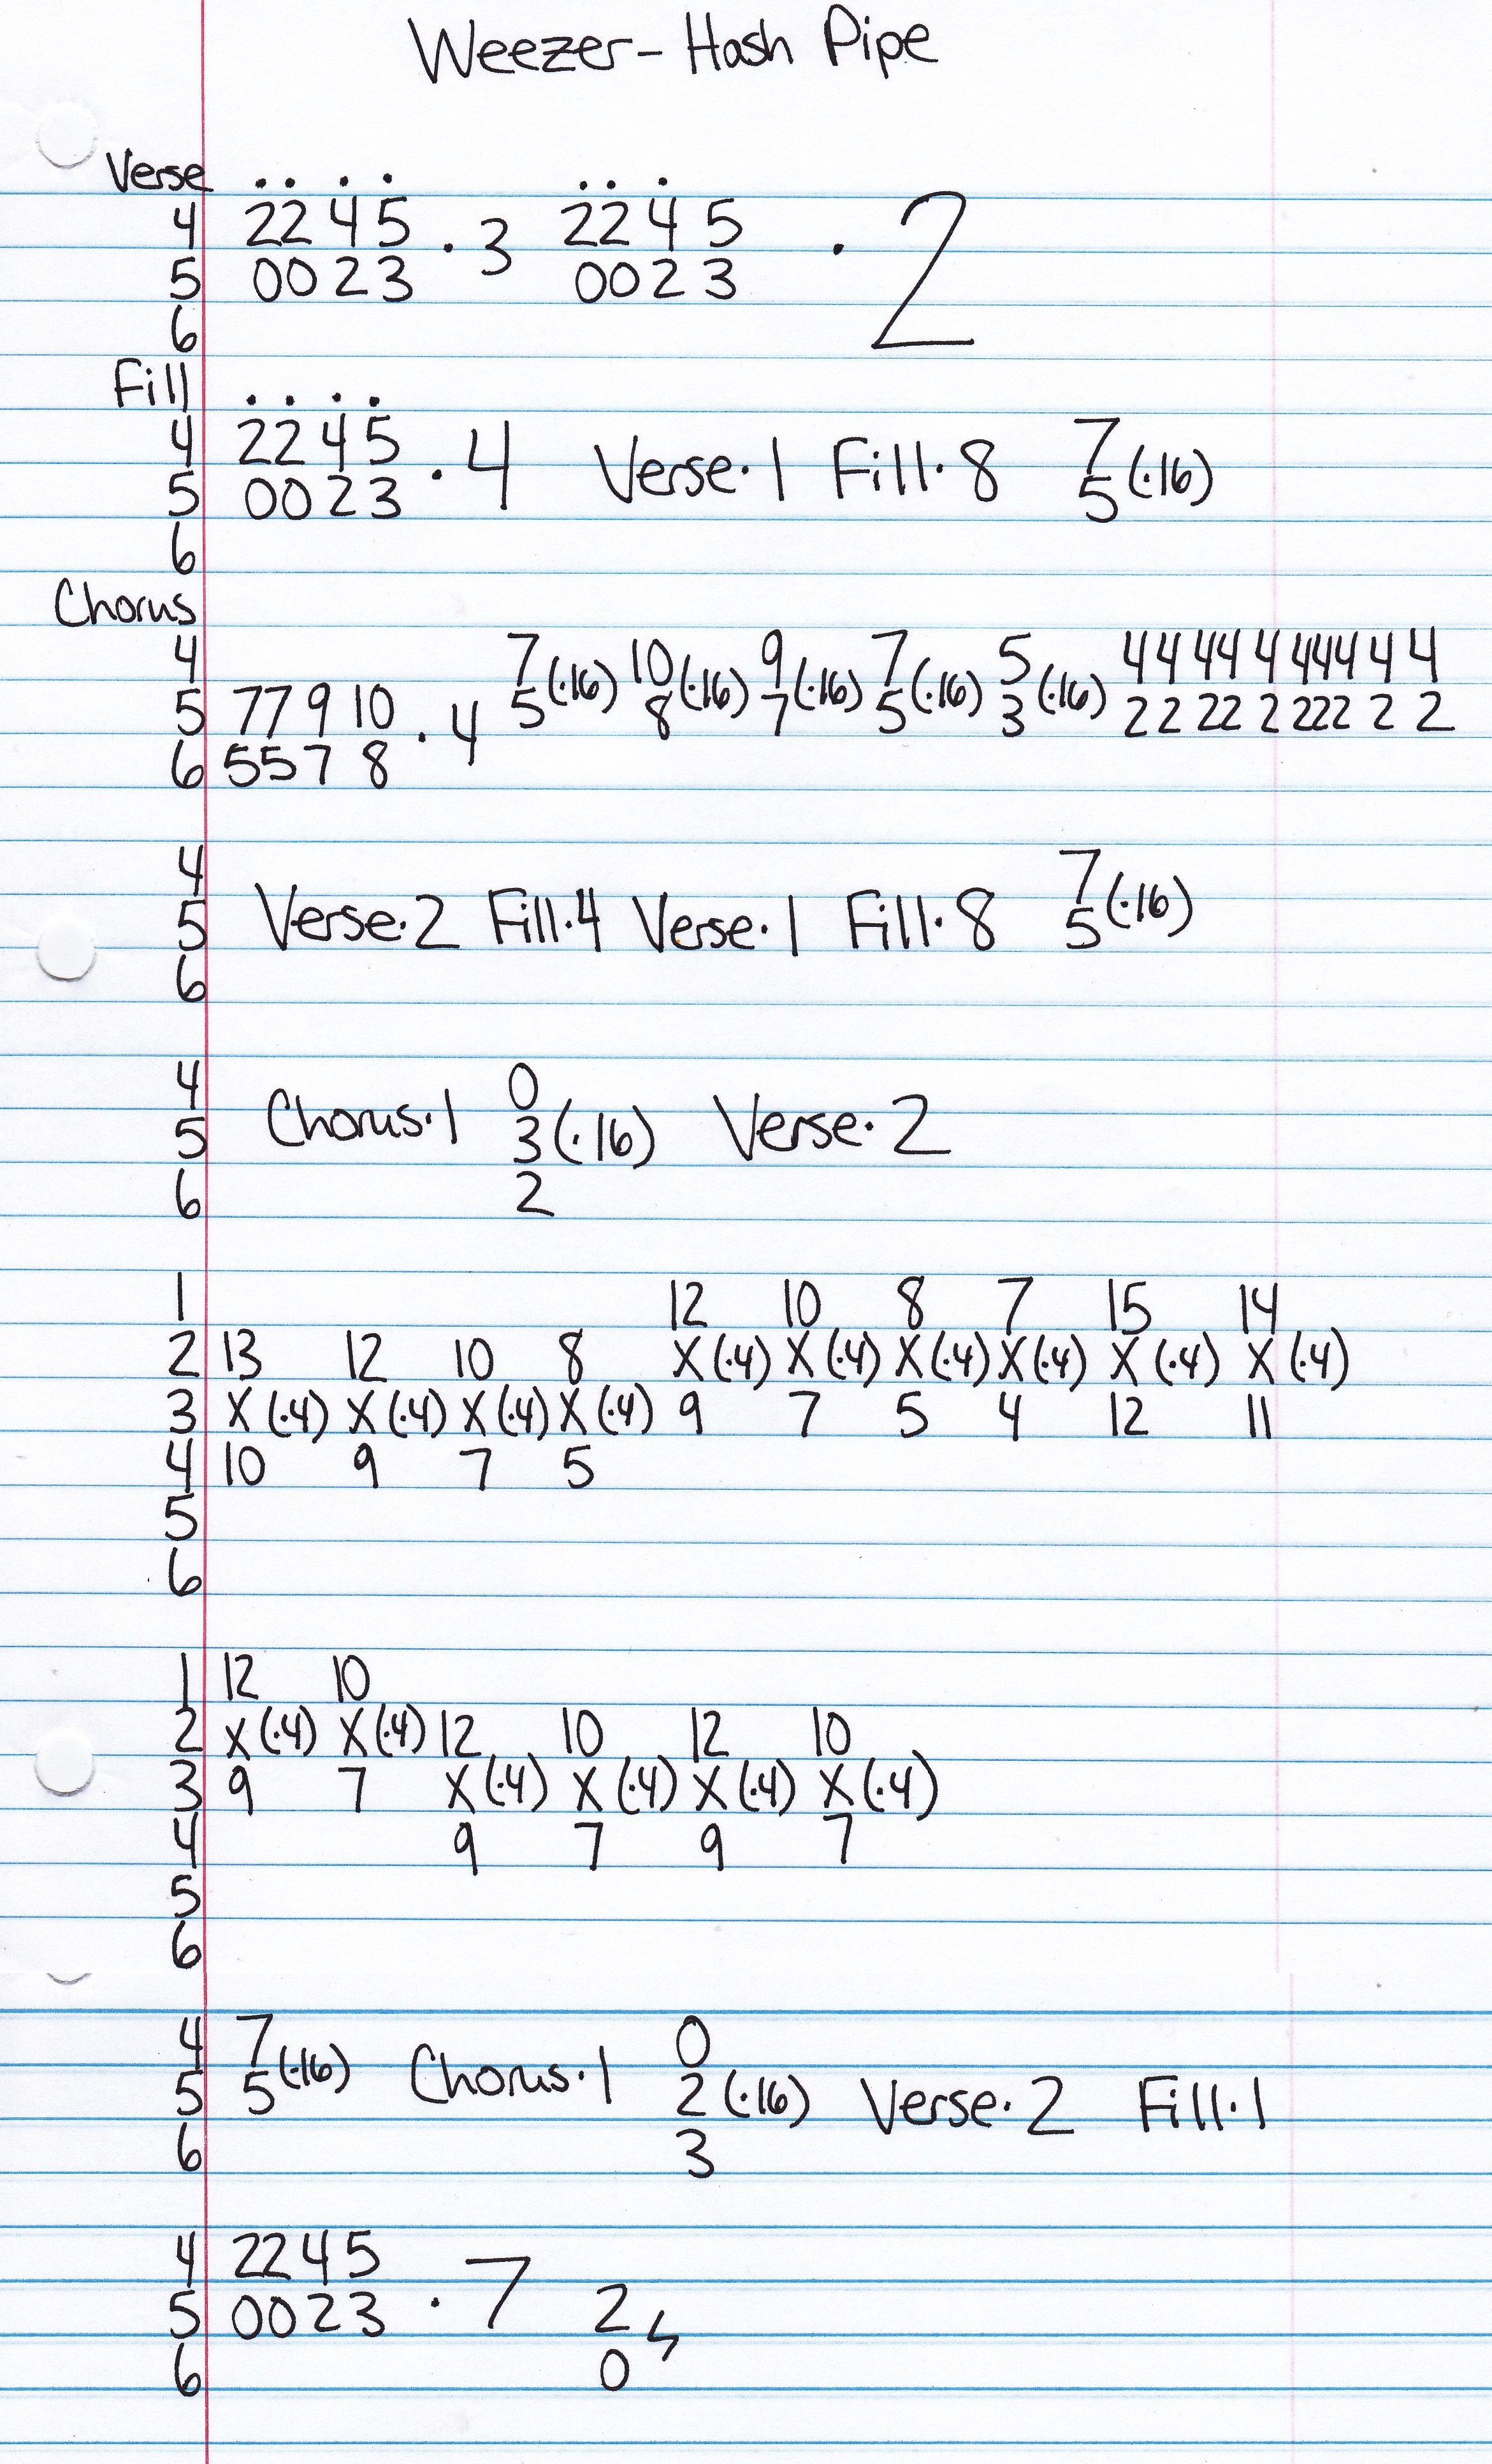 Weezer - Hash Pipe
Verse . . . . . . .
4 2 2 4 5 2 2 4 5
· 3 · 2
5 0 0 2 3 0 0 2 3
6
Fill . . . .
4 2 2 4 5 7
· 4 Verse · 1 Fill · 8 (·16)
5 0 0 2 3 5
6
Chorus
4 7 10 9 7 5 4 4 4 4 4 4 4 4 4 4
(·16) (·16) (·16) (·16) (·16)
5 7 7 9 10 · 4 5 8 7 5 3 2 2 2 2 2 2 2 2 2 2
6 5 5 7 8
4 7
5 Verse · 2 Fill · 4 Verse · 1 Fill · 8 5 (·16)
6
4 0
5 Chorus · 1 3 (·16) Verse · 2
6 2
1 12 10 8 7 15 14
2 13 12 10 8 X (·4) X (·4) X (·4) X (·4) X (·4) X (·4)
3 X (·4) X (·4) X (·4) X (·4) 9 7 5 4 12 11
4 10 9 7 5
5
6
1 12 10
2 X (·4) X (·4) 12 10 12 10
3 9 7 X (·4) X (·4) X (·4) X (·4)
4 9 7 9 7
5
6
4 7 0
5 5 (·16) Chorus · 1 2 (·16) Verse · 2 Fill · 1
6 3
4 2 2 4 5
5 0 0 2 3 · 7 2
6 0